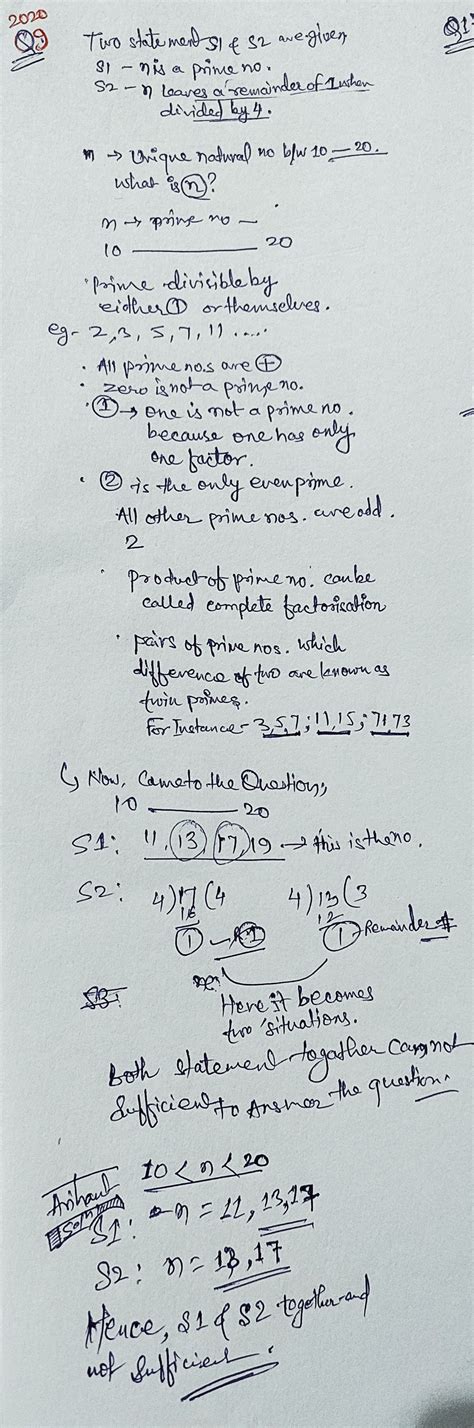 2020
Q9
Q1
Two statement S1 & S2 are given
S1 - n is a prime no.
S2 - n leaves a remainder of 1 when
divided by 4.
n → Unique natural no b/w 10 — 20.
what is n?
n → prime no —
10 —— 20
· Prime divisible by
either 1 or themselves.
eg - 2, 3, 5, 7, 11 .....
· All prime nos are +
· zero is not a prime no.
· 1 → one is not a prime no.
because one has only
one factor.
· 2 is the only even prime.
All other prime nos. are odd.
2
· Product of prime no. can be
called complete factorisation
· pairs of prime nos. which
difference of two are known as
twin primes.
For Instance - 3,5,7; 11,15; 71,73
↳ Now, Came to the Question,
10 —— 20
S1: 11, 13, 17, 19 → this is the no.
S2: 4)17(4 4)13(3
16 12
1 1 - Remainder
S3:
Here it becomes
two situations.
Both statement togather Can not
Sufficient to Answer the question.
Arihant
Soln
10 < n < 20
S1: n = 11, 13, 17
S2: n = 13, 17
Hence, S1 & S2 together and
not sufficient.